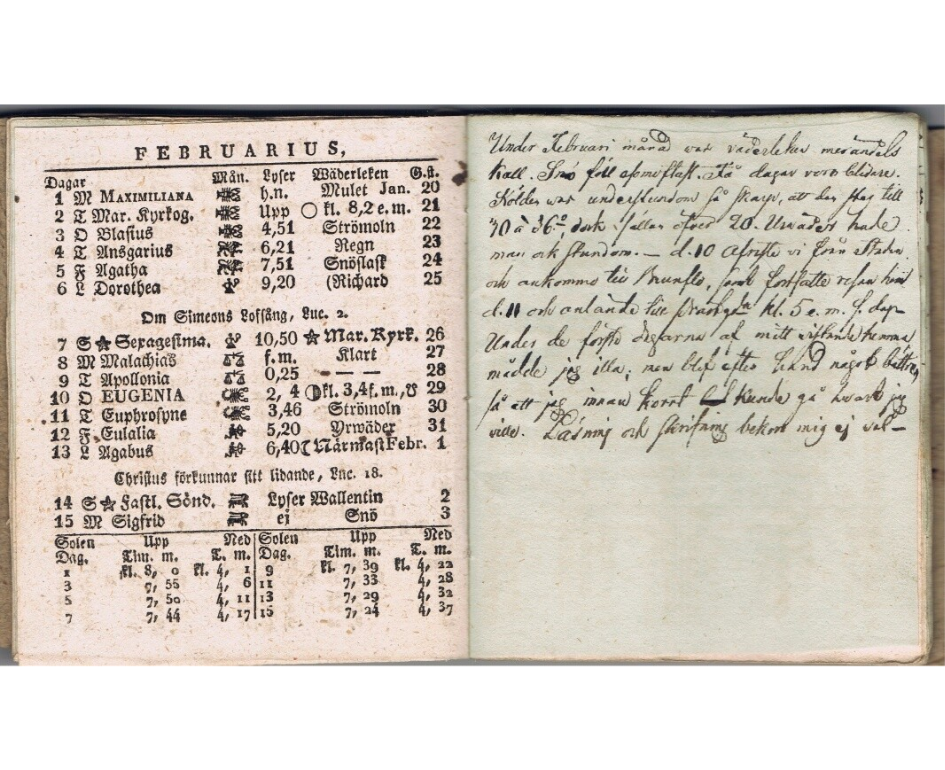 FEBRUARIUS,
Dagar Mån. Lyser Wäderleken G.st.
1 M MAXIMILIANA h.n. Mulet Jan. 20
2 T Mar. Kyrkog. Upp ○ kl. 8,2 e.m. 21
3 O Blasius 4,51 Strömoln 22
4 T Ansgarius 6,21 Regn 23
5 F Agatha 7,51 Snöslask 24
6 L Dorothea 9,20 (Richard 25
Om Simeons Lofsång, Luc. 2.
7 S Sexagesima. 10,50 Mar. Kyrk. 26
8 M Malachias f.m. Klart 27
9 T Apollonia 0,25 — — — 28
10 O EUGENIA 2, 4 kl. 3,4 f.m., 29
11 T Euphrosyne 3,46 Strömoln 30
12 F Eulalia 5,20 Yrwäder 31
13 L Agabus 6,40 Närmast Febr. 1
Christus förkunnar sitt lidande, Luc. 18.
14 S Fastl. Sönd. Lyser Wallentin 2
15 M Sigfrid ej Snö 3
Solen Upp Ned Solen Upp Ned
Dag. Tim. m. T. m. Dag. Tim. m. T. m.
1 kl. 8, 0 kl. 4, 1 9 kl. 7, 39 kl. 4, 22
3 7, 55 4, 6 11 7, 33 4, 28
5 7, 50 4, 11 13 7, 29 4, 32
7 7, 44 4, 17 15 7, 24 4, 37
Under Februari månad war väderleken merändels
kall. Snö föll esomoftast. Få dagar voro blidare.
Kölden war understundom så skarp, att den steg till
30 à 36°, dock sällan öfver 20. Urwäder hade
man ock stundom. — d. 10 afreste vi från Staden
och ankommo till fortsatte resan
d. 11 och anlände till kl. 5 e. m. s. dag
Under de första dagarna af mitt wistande hemma
mådde jag illa; men blef efter hand något bättre,
så att jag innan kort kunde gå hwart jag
wille. Läsning och skrifning bekom mig ej väl—